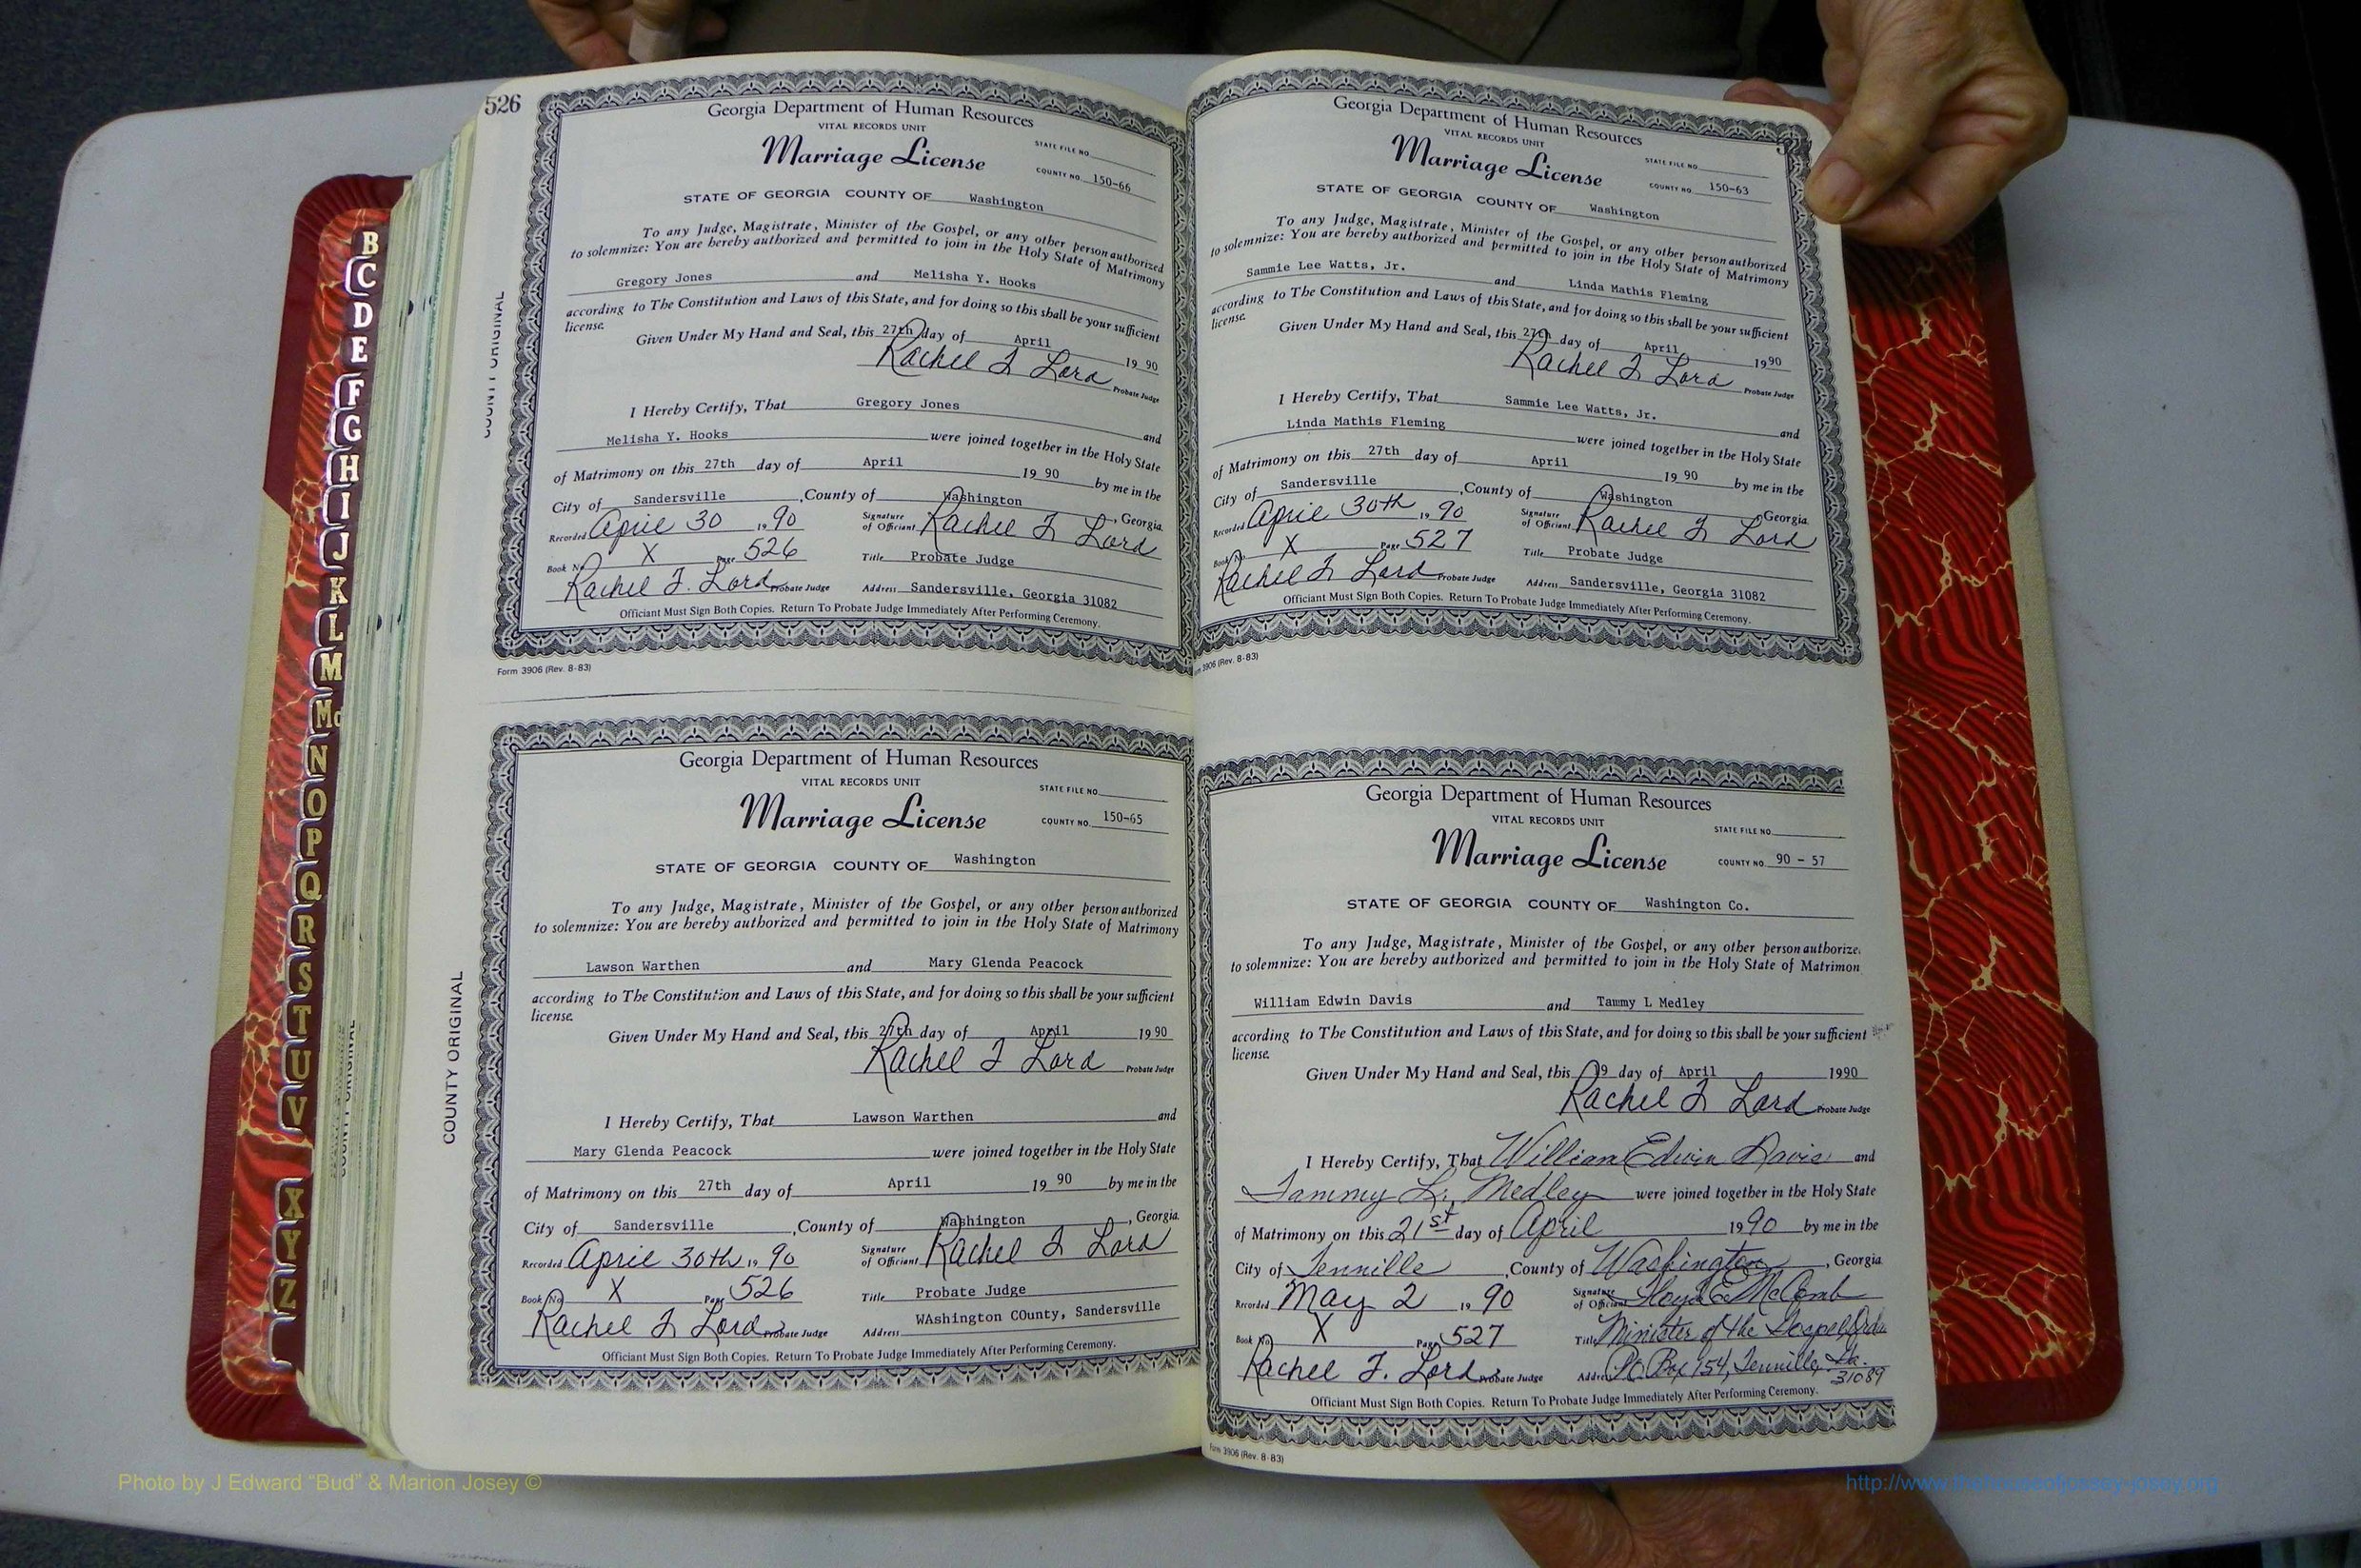 526
COUNTY ORIGINAL
Georgia Department of Human Resources
VITAL RECORDS UNIT
Marriage License
STATE FILE NO.
COUNTY NO. 150-66
STATE OF GEORGIA COUNTY OF Washington
To any Judge, Magistrate, Minister of the Gospel, or any other person authorized
to solemnize: You are hereby authorized and permitted to join in the Holy State of Matrimony
Gregory Jones and Melisha Y. Hooks
according to The Constitution and Laws of this State, and for doing so this shall be your sufficient
license.
Given Under My Hand and Seal, this 27th day of April 19 90
Rachel F Lord Probate Judge
I Hereby Certify, That Gregory Jones and
Melisha Y. Hooks were joined together in the Holy State
of Matrimony on this 27th day of April 19 90 by me in the
City of Sandersville, County of Washington, Georgia
Recorded April 30 19 90 Signature of Officiant Rachel F Lord
Book No. X Page 526 Title Probate Judge
Rachel F. Lord Probate Judge Address Sandersville, Georgia 31082
Officiant Must Sign Both Copies. Return To Probate Judge Immediately After Performing Ceremony.
Form 3906 (Rev. 8-83)
COUNTY ORIGINAL
Georgia Department of Human Resources
VITAL RECORDS UNIT
Marriage License
STATE FILE NO.
COUNTY NO. 150-65
STATE OF GEORGIA COUNTY OF Washington
To any Judge, Magistrate, Minister of the Gospel, or any other person authorized
to solemnize: You are hereby authorized and permitted to join in the Holy State of Matrimony
Lawson Warthen and Mary Glenda Peacock
according to The Constitution and Laws of this State, and for doing so this shall be your sufficient
license.
Given Under My Hand and Seal, this 27th day of April 19 90
Rachel F Lord Probate Judge
I Hereby Certify, That Lawson Warthen and
Mary Glenda Peacock were joined together in the Holy State
of Matrimony on this 27th day of April 19 90 by me in the
City of Sandersville, County of Washington, Georgia
Recorded April 30th 19 90 Signature of Officiant Rachel F Lord
Book No. X Page 526 Title Probate Judge
Rachel F Lord Probate Judge Address WAshington COunty, Sandersville
Officiant Must Sign Both Copies. Return To Probate Judge Immediately After Performing Ceremony.
Georgia Department of Human Resources
VITAL RECORDS UNIT
Marriage License
STATE FILE NO.
COUNTY NO. 150-63
STATE OF GEORGIA COUNTY OF Washington
To any Judge, Magistrate, Minister of the Gospel, or any other person authorized
to solemnize: You are hereby authorized and permitted to join in the Holy State of Matrimony
Sammie Lee Watts, Jr. and Linda Mathis Fleming
according to The Constitution and Laws of this State, and for doing so this shall be your sufficient
license.
Given Under My Hand and Seal, this 27th day of April 19 90
Rachel F Lord Probate Judge
I Hereby Certify, That Sammie Lee Watts, Jr. and
Linda Mathis Fleming were joined together in the Holy State
of Matrimony on this 27th day of April 19 90 by me in the
City of Sandersville, County of Washington, Georgia
Recorded April 30th 19 90 Signature of Officiant Rachel F Lord
Book No. X Page 527 Title Probate Judge
Rachel F Lord Probate Judge Address Sandersville, Georgia 31082
Officiant Must Sign Both Copies. Return To Probate Judge Immediately After Performing Ceremony.
3906 (Rev. 8-83)
Georgia Department of Human Resources
VITAL RECORDS UNIT
Marriage License
STATE FILE NO.
COUNTY NO. 90 - 57
STATE OF GEORGIA COUNTY OF Washington Co.
To any Judge, Magistrate, Minister of the Gospel, or any other person authorize
to solemnize: You are hereby authorized and permitted to join in the Holy State of Matrimon
William Edwin Davis and Tammy L Medley
according to The Constitution and Laws of this State, and for doing so this shall be your sufficient
license.
Given Under My Hand and Seal, this 19 day of April 1990
Rachel F Lord Probate Judge
I Hereby Certify, That William Edwin Davis and
Tammy L. Medley were joined together in the Holy State
of Matrimony on this 21st day of April 1990 by me in the
City of Tennille, County of Washington, Georgia
Recorded May 2 19 90 Signature of Officiant Floyd E. McComb
Book No. X Page 527 Title Minister of the Gospel, Orda
Rachel F. Lord Probate Judge Address P.O. Box 154, Tennille, Ga. 31089
Officiant Must Sign Both Copies. Return To Probate Judge Immediately After Performing Ceremony.
Form 3906 (Rev. 8-83)
B
C
D
E
F
G
H
I
J
K
L
M
Mc
N
O
P
Q
R
S
T
U
V
X
Y
Z
Photo by J Edward “Bud” & Marion Josey ©
http://www.thehouseofjossey-josey.org